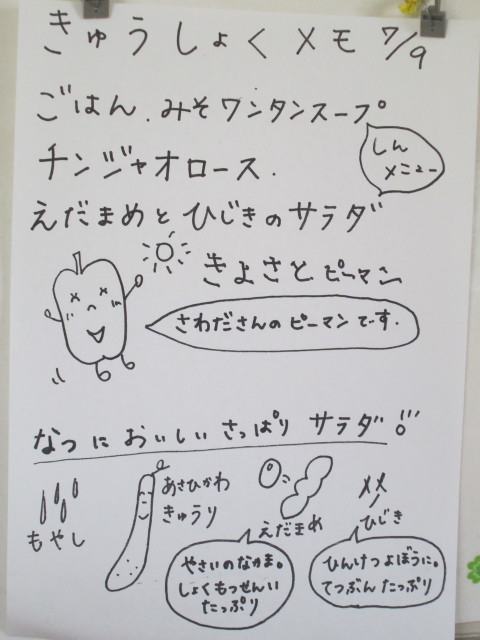 きゅうしょくメモ 7/9
ごはん.みそワンタンスープ
しん
メニュー
チンジャオロース.
えだまめとひじきのサラダ
きよさとピーマン
さわださんのピーマンです.
なつにおいしいさっぱりサラダ!!
もやし
あさひかわ
きゅうり
えだまめ
ひじき
やさいのなかま。
しょくもっせんい
たっぷり
ひんけつよぼうに。
てつぶんたっぷり